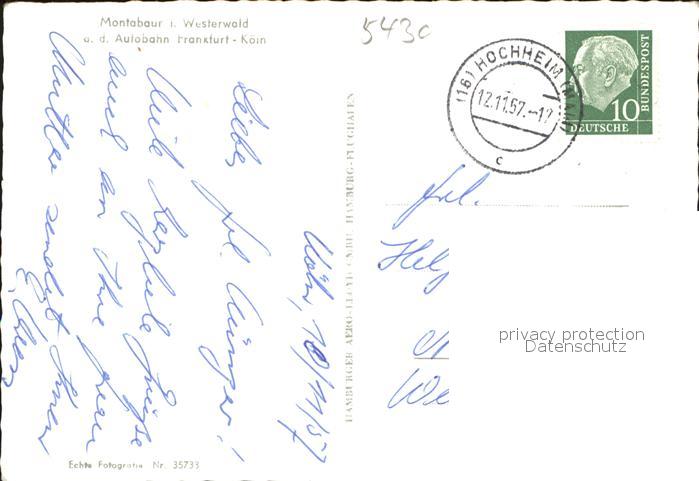 Montabaur i. Westerwald
a. d. Autobahn Frankfurt - Köln
5430
(16) HOCHHEIM (MAIN)
12.11.57.-17
c
BUNDESPOST
10
DEUTSCHE
HAMBURGER AERO-LLOYD GMBH. HAMBURG-FLUGHAFEN
Köln, 10/11/57
Liebes Frl. Münzer!
Viele herzliche Grüße
auch an Ihre
Mutter sendet Ihnen
Frl.
privacy protection
Datenschutz
Echte Fotografie Nr. 35733